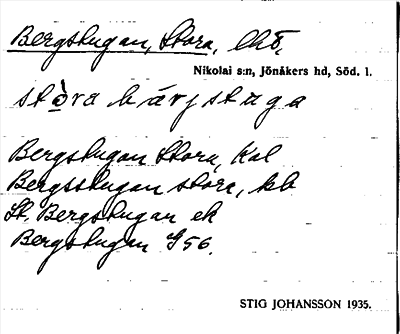 Bergstugan, Stora, lht,
Nikolai s:n, Jönåkers hd, Söd. l.
stòra bärjstuga
Bergstugan Stora, Kal
Bergsstugan stora, kb
St. Bergstugan ek
Bergstugan G56.
STIG JOHANSSON 1935.